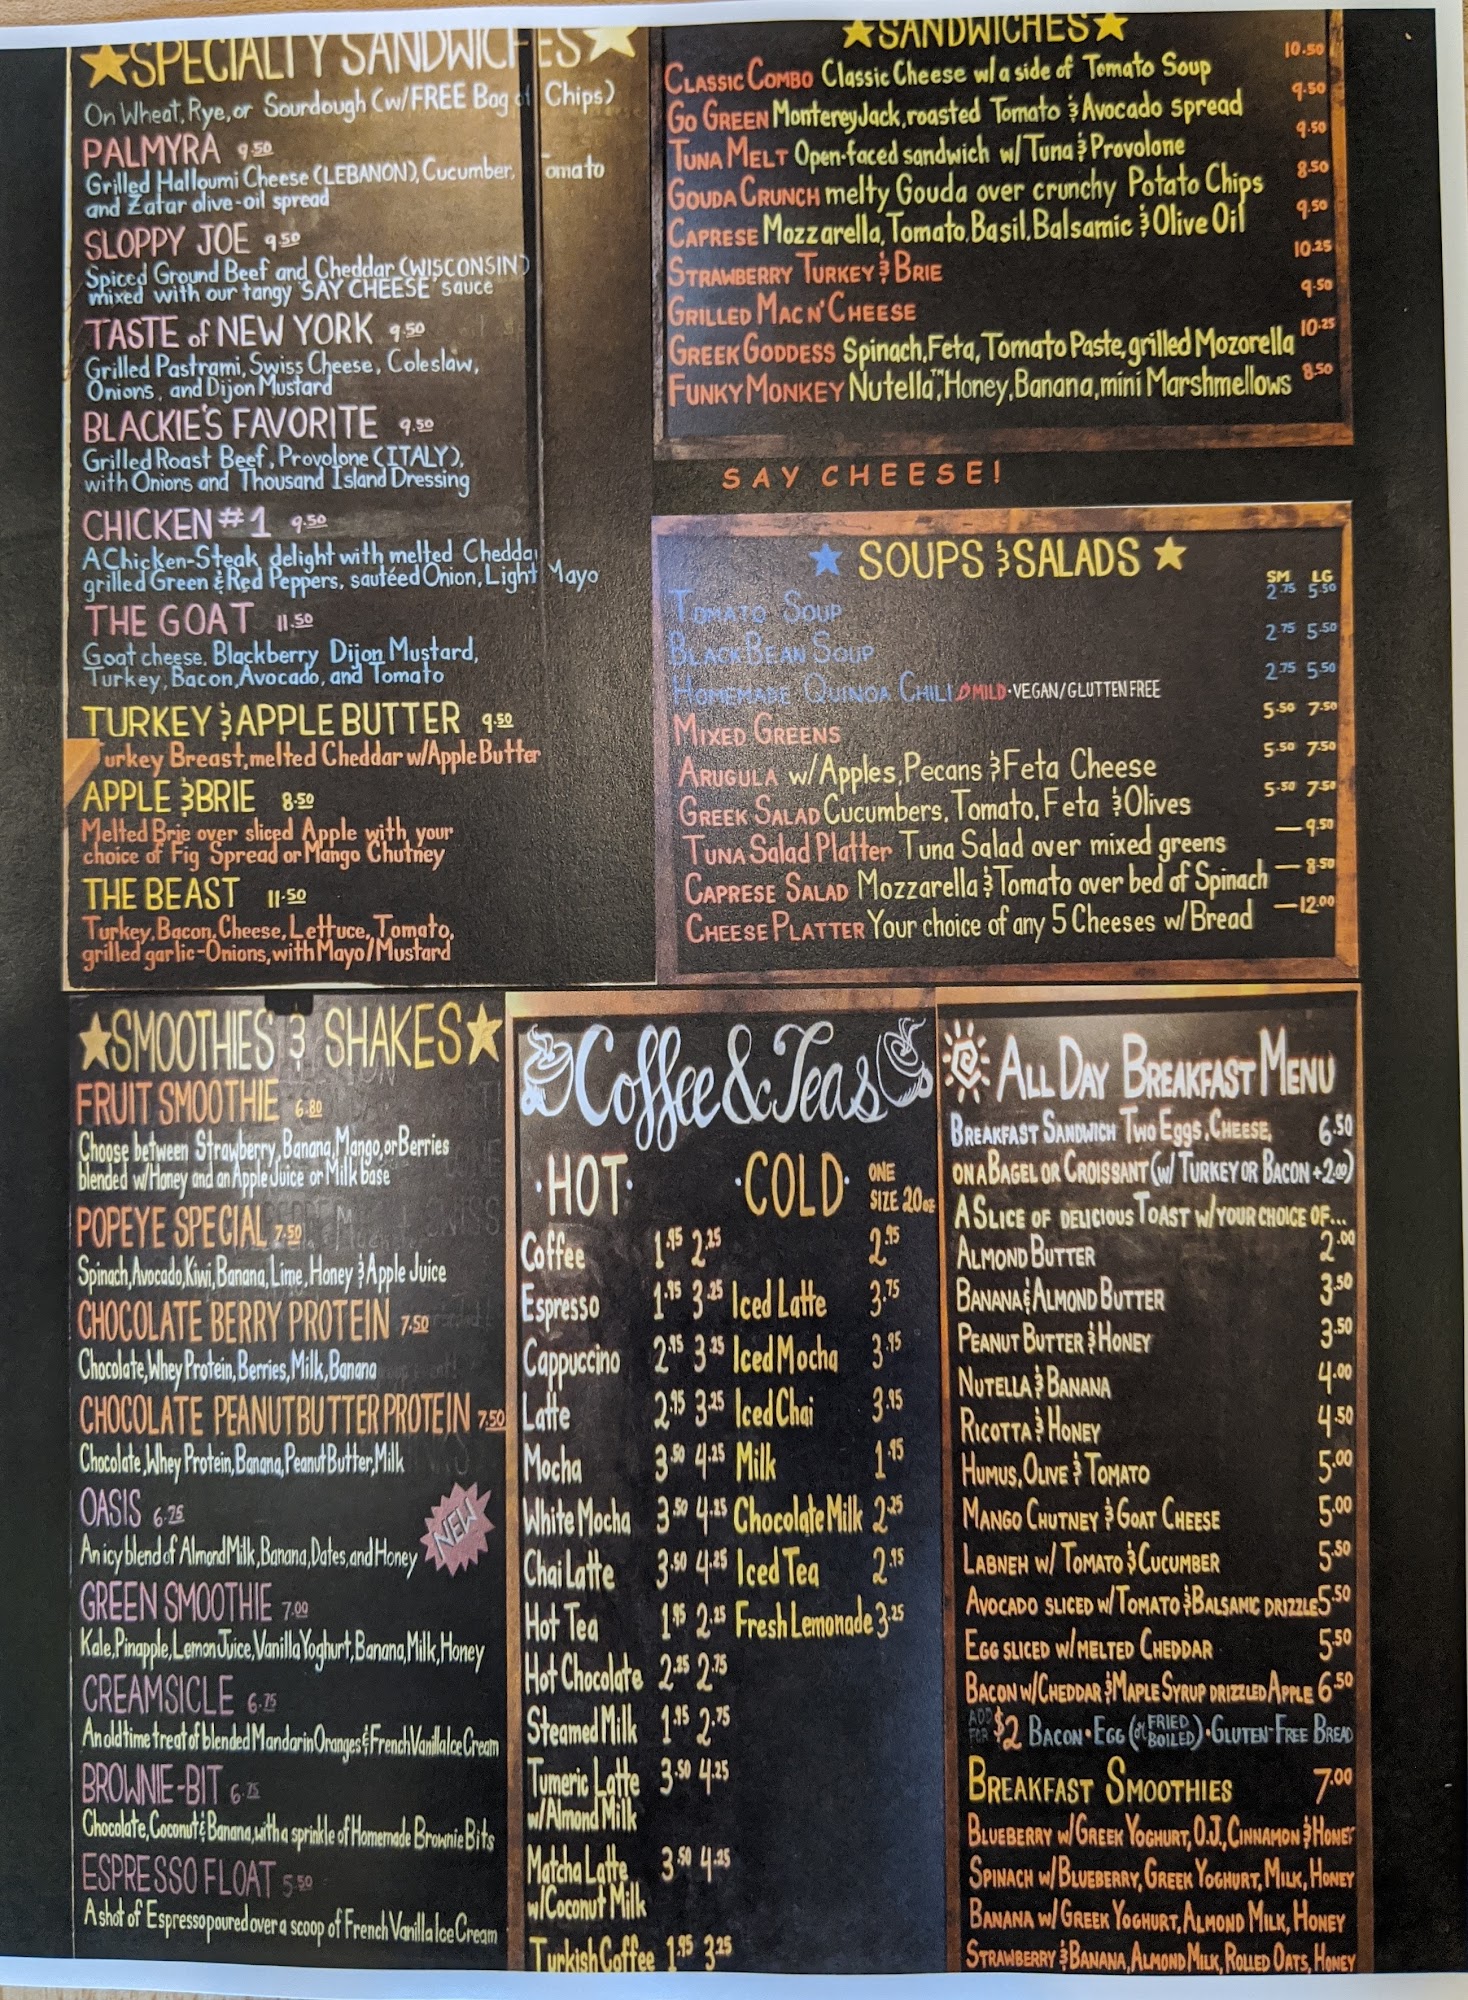 ★SPECIALTY SANDWICHES★
On Wheat, Rye, or Sourdough (w/FREE Bag of Chips)
PALMYRA 9.50
Grilled Halloumi Cheese (LEBANON), Cucumber, Tomato
and Zatar olive-oil spread
SLOPPY JOE 9.50
Spiced Ground Beef and Cheddar (WISCONSIN)
mixed with our tangy 'SAY CHEESE' sauce
TASTE of NEW YORK 9.50
Grilled Pastrami, Swiss Cheese, Coleslaw,
Onions, and Dijon Mustard
BLACKIE'S FAVORITE 9.50
Grilled Roast Beef, Provolone (ITALY),
with Onions and Thousand Island Dressing
CHICKEN #1 9.50
A Chicken-Steak delight with melted Cheddar
grilled Green & Red Peppers, sautéed Onion, Light Mayo
THE GOAT 11.50
Goat cheese, Blackberry Dijon Mustard,
Turkey, Bacon, Avocado, and Tomato
TURKEY & APPLE BUTTER 9.50
Turkey Breast, melted Cheddar w/Apple Butter
APPLE & BRIE 8.50
Melted Brie over sliced Apple with your
choice of Fig Spread or Mango Chutney
THE BEAST 11.50
Turkey, Bacon, Cheese, Lettuce, Tomato,
grilled garlic-Onions, with Mayo/Mustard
★SANDWICHES★
CLASSIC COMBO Classic Cheese w/a side of Tomato Soup 10.50
GO GREEN Monterey Jack, roasted Tomato & Avocado spread 9.50
TUNA MELT Open-faced sandwich w/Tuna & Provolone 9.50
GOUDA CRUNCH melty Gouda over crunchy Potato Chips 8.50
CAPRESE Mozzarella, Tomato, Basil, Balsamic & Olive Oil 9.50
STRAWBERRY TURKEY & BRIE 10.25
GRILLED MAC N' CHEESE 9.50
GREEK GODDESS Spinach, Feta, Tomato Paste, grilled Mozorella 10.25
FUNKY MONKEY Nutella™, Honey, Banana, mini Marshmellows 8.50
SAY CHEESE!
★ SOUPS & SALADS ★
SM LG
TOMATO SOUP 2.75 5.50
BLACK BEAN SOUP 2.75 5.50
HOMEMADE QUINOA CHILI MILD·VEGAN/GLUTTEN FREE 2.75 5.50
MIXED GREENS 5.50 7.50
ARUGULA w/Apples, Pecans & Feta Cheese 5.50 7.50
GREEK SALAD Cucumbers, Tomato, Feta & Olives 5.50 7.50
TUNA SALAD PLATTER Tuna Salad over mixed greens —9.50
CAPRESE SALAD Mozzarella & Tomato over bed of Spinach —8.50
CHEESE PLATTER Your choice of any 5 Cheeses w/Bread —12.00
★SMOOTHIES & SHAKES★
FRUIT SMOOTHIE 6.80
Choose between Strawberry, Banana, Mango, or Berries
blended w/Honey and an Apple Juice or Milk base
POPEYE SPECIAL 7.50
Spinach, Avocado, Kiwi, Banana, Lime, Honey & Apple Juice
CHOCOLATE BERRY PROTEIN 7.50
Chocolate, Whey Protein, Berries, Milk, Banana
CHOCOLATE PEANUTBUTTER PROTEIN 7.50
Chocolate, Whey Protein, Banana, Peanut Butter, Milk
OASIS 6.75
NEW
An icy blend of Almond Milk, Banana, Dates, and Honey
GREEN SMOOTHIE 7.00
Kale, Pinapple, Lemon Juice, Vanilla Yoghurt, Banana, Milk, Honey
CREAMSICLE 6.75
An old time treat of blended Mandarin Oranges & French Vanilla Ice Cream
BROWNIE-BIT 6.75
Chocolate, Coconut & Banana, with a sprinkle of Homemade Brownie Bits
ESPRESSO FLOAT 5.50
A shot of Espresso poured over a scoop of French Vanilla Ice Cream
Coffee & Teas
·HOT· ·COLD· ONE
SIZE 20oz
Coffee 1.95 2.25 2.95
Espresso 1.95 3.25 Iced Latte 3.75
Cappuccino 2.95 3.25 Iced Mocha 3.95
Latte 2.95 3.25 Iced Chai 3.95
Mocha 3.50 4.25 Milk 1.95
White Mocha 3.50 4.25 Chocolate Milk 2.25
Chai Latte 3.50 4.25 Iced Tea 2.95
Hot Tea 1.95 2.25 Fresh Lemonade 3.25
Hot Chocolate 2.25 2.75
Steamed Milk 1.95 2.75
Tumeric Latte 3.50 4.25
w/Almond Milk
Matcha Latte 3.50 4.25
w/Coconut Milk
Turkish Coffee 1.95 3.25
ALL DAY BREAKFAST MENU
BREAKFAST SANDWICH TWO EGGS, CHEESE, 6.50
ON A BAGEL OR CROISSANT (W/ TURKEY OR BACON +2.00)
A SLICE OF DELICIOUS TOAST W/YOUR CHOICE OF...
ALMOND BUTTER 2.00
BANANA & ALMOND BUTTER 3.50
PEANUT BUTTER & HONEY 3.50
NUTELLA & BANANA 4.00
RICOTTA & HONEY 4.50
HUMUS, OLIVE & TOMATO 5.00
MANGO CHUTNEY & GOAT CHEESE 5.00
LABNEH W/ TOMATO & CUCUMBER 5.50
AVOCADO SLICED W/TOMATO & BALSAMIC DRIZZLE 5.50
EGG SLICED W/MELTED CHEDDAR 5.50
BACON W/CHEDDAR & MAPLE SYRUP DRIZZLED APPLE 6.50
ADD FOR $2 BACON·EGG (FRIED or BOILED)·GLUTEN-FREE BREAD
BREAKFAST SMOOTHIES 7.00
BLUEBERRY W/GREEK YOGHURT, O.J., CINNAMON & HONEY
SPINACH W/BLUEBERRY, GREEK YOGHURT, MILK, HONEY
BANANA W/GREEK YOGHURT, ALMOND MILK, HONEY
STRAWBERRY & BANANA, ALMOND MILK, ROLLED OATS, HONEY